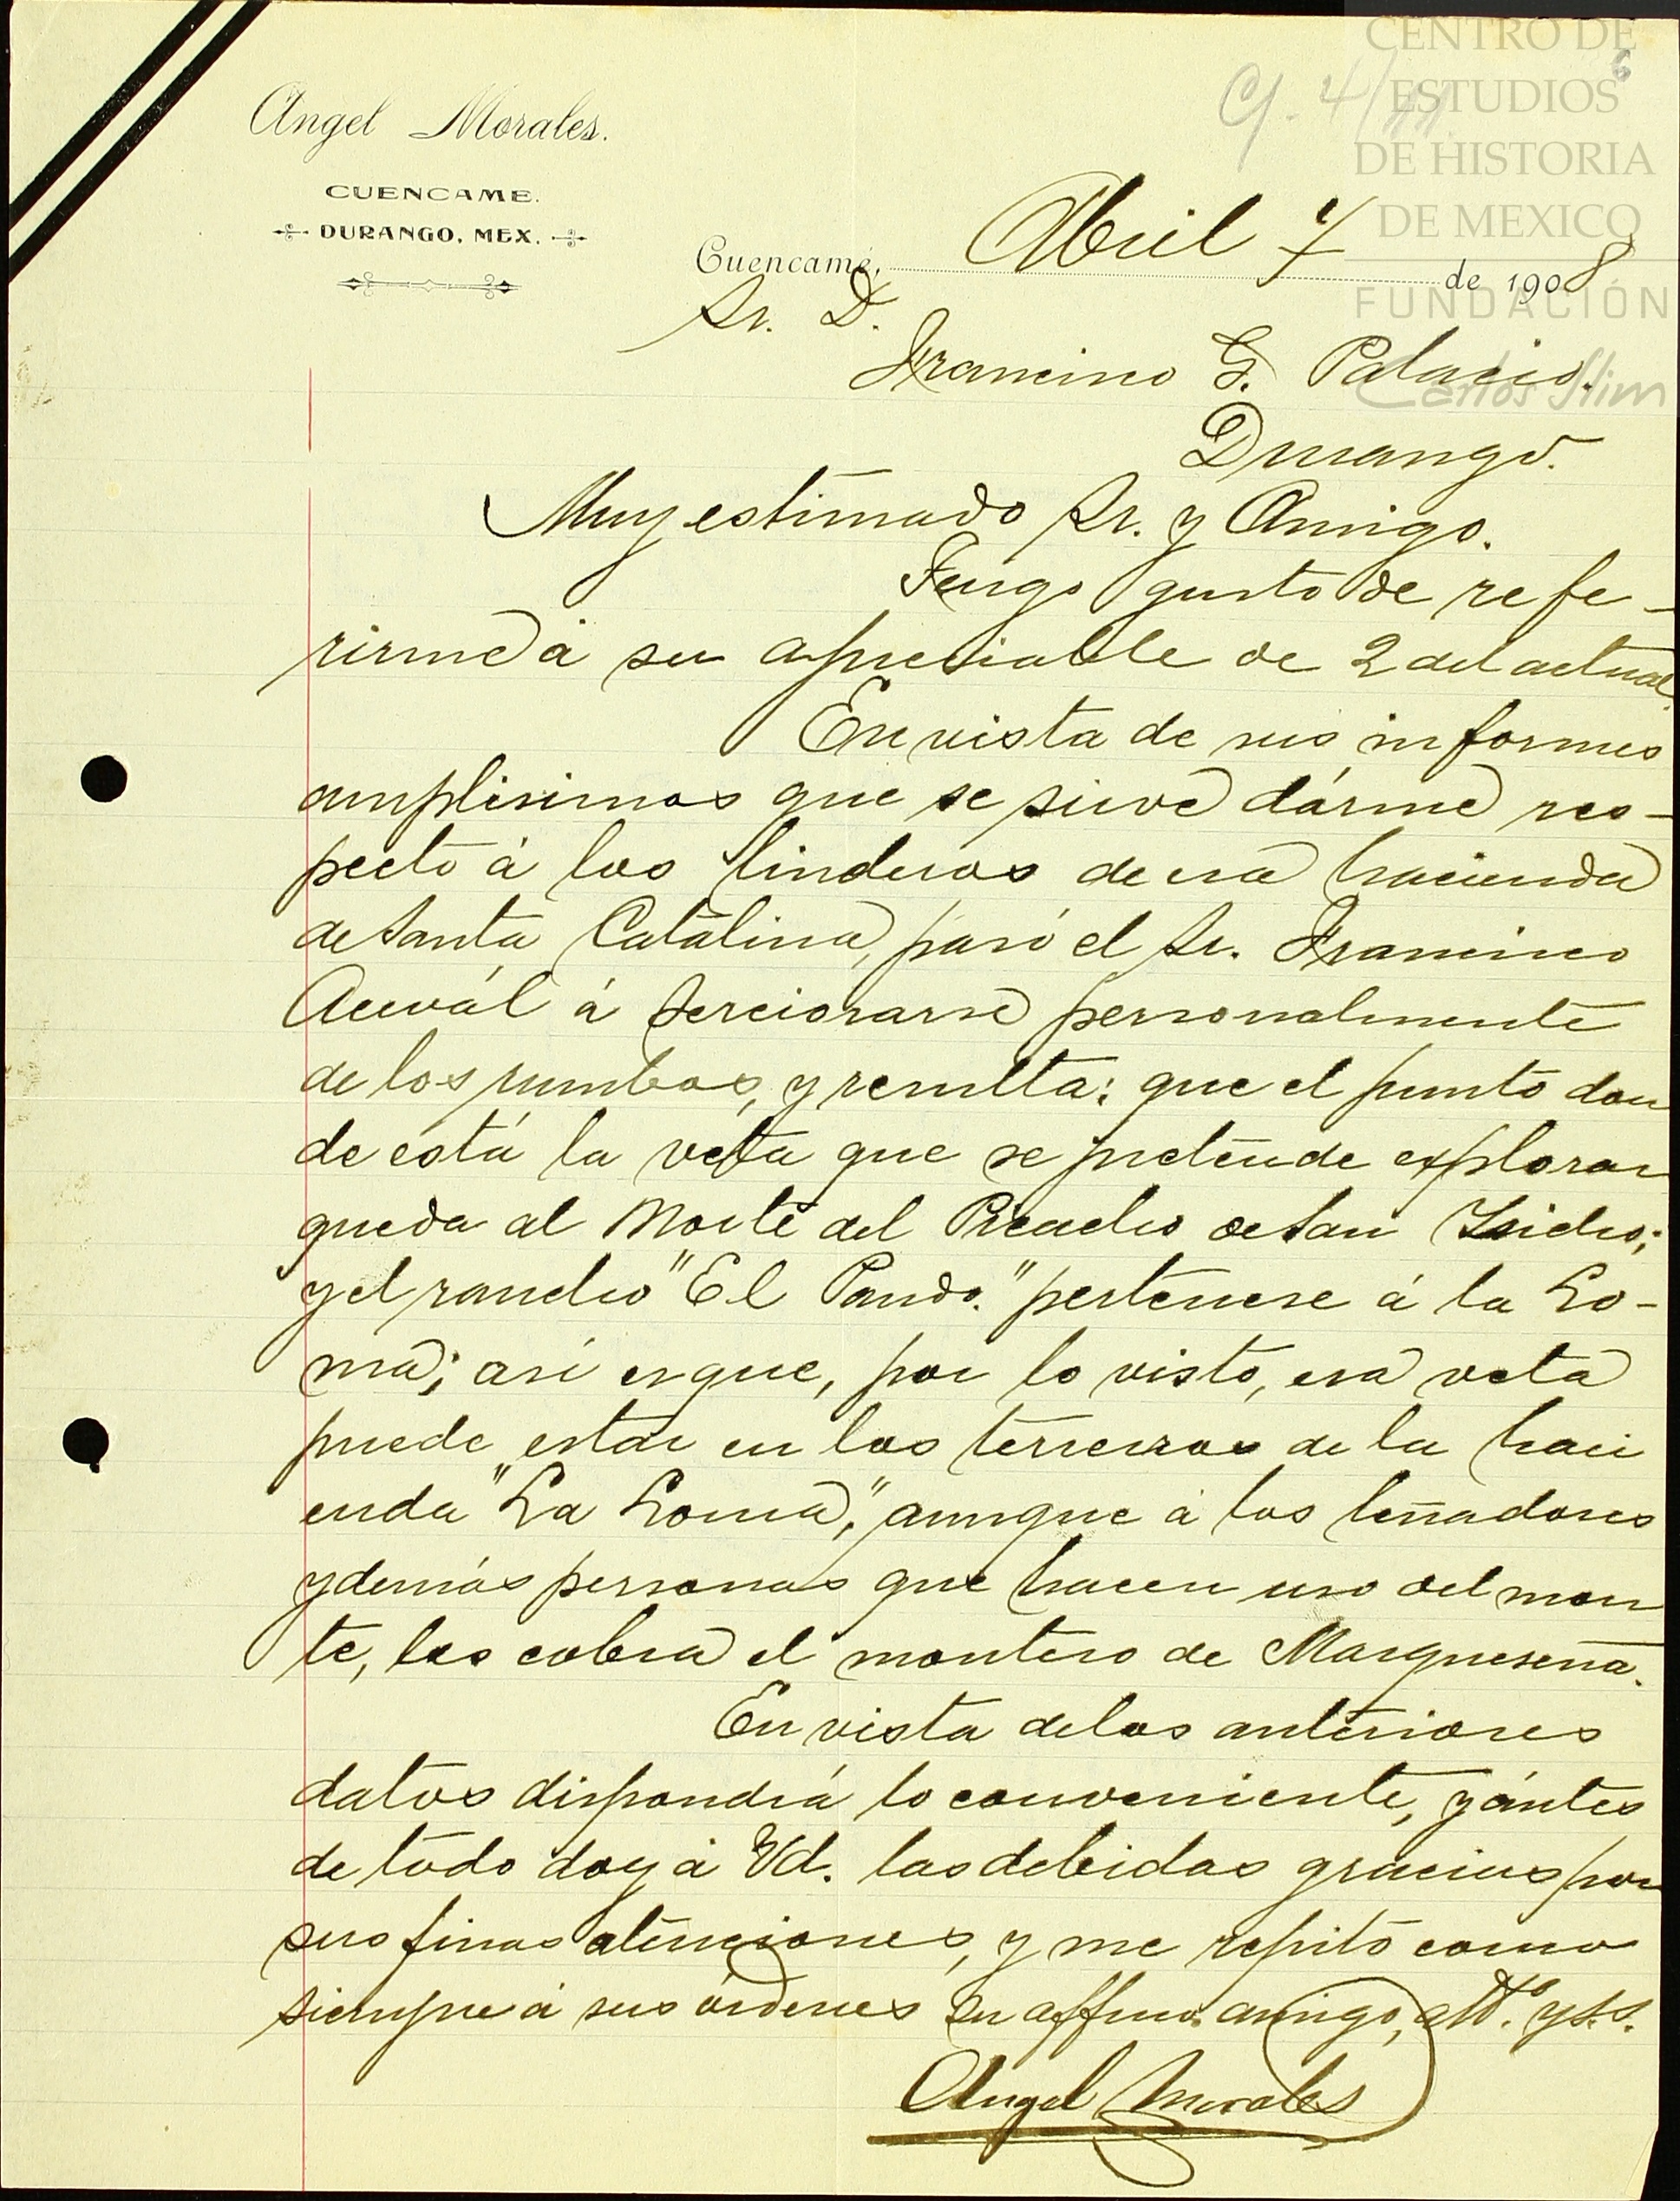 CENTRO DE
ESTUDIOS
DE HISTORIA
DE MEXICO
FUNDACIÓN
Carlos Slim
6
Angel Morales.
CUENCAME.
DURANGO, MEX.
Cuencamé, Abril 7 de 1908
Sr. D.
Francisco G. Palacio.
Durango.
Muy estimado Sr. y Amigo.
Tengo gusto de refe-
rirme á su apreciable de 2 del actual.
En vista de sus informes
amplisimos que se sirve dárme res-
pecto á los linderos de esa hacienda
de Santa Catalina, pasó el Sr. Francisco
á serciorarse personalmente
de los rumbos, y resulta: que el punto don
de está la veta que se pretende explorar
queda al Norte del Picacho de San Isidro;
y el rancho "El Pando." pertenese á la Lo-
ma; asi es que, por lo visto, esa veta
puede estar en los terrenos de la haci
enda "La Loma," aunque á los leñadores
y demás personas que hacen uso del mon
te, les cobra el montero de Marqueseña.
En vista de los anteriores
datos dispondrá lo conveniente, y ántes
de todo doy á Vd. las debidas gracias por
sus finas atenciones, y me repito como
siempre á sus órdenes su affmo. amigo, atto. y s.s.
Angel Morales